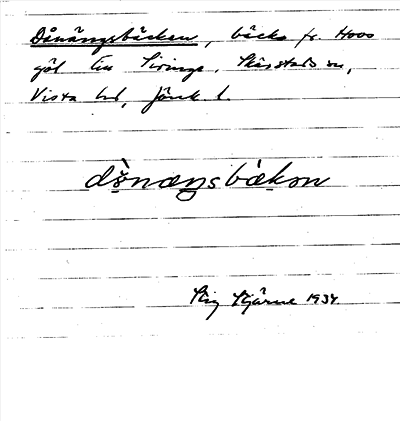 Dånängsbäcken, bäck fr. Hoos
göl till Sirings. Skärstads sn,
Vista hd, Jönk l.
dånæŋsbækən
Stig Stjärne 1934.